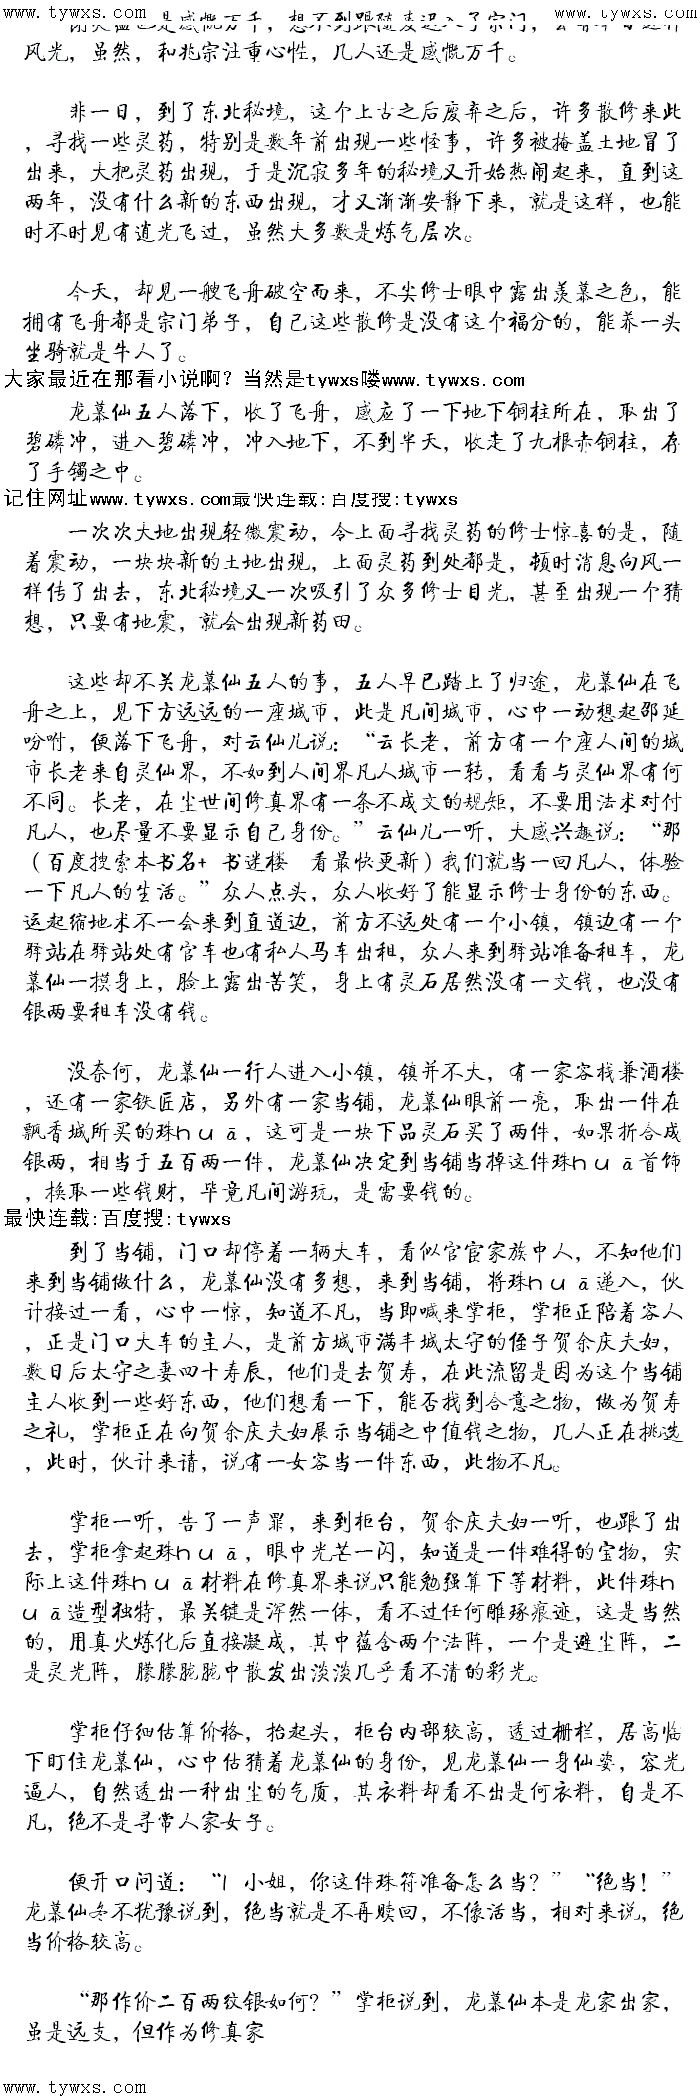 www.tywxs.com www.tywxs.com
风光，虽然，和兆宗注重心性，几人还是感慨万千。
非一日，到了东北秘境，这个上古之后废弃之后，许多散修来此
，寻找一些灵药，特别是数年前出现一些怪事，许多被掩盖土地冒了
出来，大把灵药出现，于是沉寂多年的秘境又开始热闹起来，直到这
两年，没有什么新的东西出现，才又渐渐安静下来，就是这样，也能
时不时见有遁光飞过，虽然大多数是炼气层次。
今天，却见一艘飞舟破空而来，不尖修士眼中露出羡慕之色，能
拥有飞舟都是宗门弟子，自己这些散修是没有这个福分的，能养一头
坐骑就是牛人了。
大家最近在那看小说啊？当然是tywxs喽www.tywxs.com
龙慕仙五人落下，收了飞舟，感应了一下地下铜柱所在，取出了
碧磷冲，进入碧磷冲，冲入地下，不到半天，收走了九根赤铜柱，存
了手镯之中。
记住网址www.tywxs.com最快连载:百度搜:tywxs
一次次大地出现轻微震动，令上面寻找灵药的修士惊喜的是，随
着震动，一块块新的土地出现，上面灵药到处都是，顿时消息向风一
样传了出去，东北秘境又一次吸引了众多修士目光，甚至出现一个猜
想，只要有地震，就会出现新药田。
这些却不关龙慕仙五人的事，五人早已踏上了归途，龙慕仙在飞
舟之上，见下方远远的一座城市，此是凡间城市，心中一动想起邵延
吩咐，便落下飞舟，对云仙儿说：“云长老，前方有一个座人间的城
市长老来自灵仙界，不如到人间界凡人城市一转，看看与灵仙界有何
不同。长老，在尘世间修真界有一条不成文的规矩，不要用法术对付
凡人，也尽量不要显示自己身份。”云仙儿一听，大感兴趣说：“那
（百度搜索本书名+ 书迷楼 看最快更新）我们就当一回凡人，体验
一下凡人的生活。”众人点头，众人收好了能显示修士身份的东西。
运起缩地术不一会来到直道边，前方不远处有一个小镇，镇边有一个
驿站在驿站处有官车也有私人马车出租，众人来到驿站准备租车，龙
慕仙一摸身上，脸上露出苦笑，身上有灵石居然没有一文钱，也没有
银两要租车没有钱。
没奈何，龙慕仙一行人进入小镇，镇并不大，有一家客栈兼酒楼
，还有一家铁匠店，另外有一家当铺，龙慕仙眼前一亮，取出一件在
飘香城所买的珠huā，这可是一块下品灵石买了两件，如果折合成
银两，相当于五百两一件，龙慕仙决定到当铺当掉这件珠huā首饰
，换取一些钱财，毕竟凡间游玩，是需要钱的。
最快连载:百度搜:tywxs
到了当铺，门口却停着一辆大车，看似官宦家族中人，不知他们
来到当铺做什么，龙慕仙没有多想，来到当铺，将珠huā递入，伙
计接过一看，心中一惊，知道不凡，当即喊来掌柜，掌柜正陪着客人
，正是门口大车的主人，是前方城市满丰城太守的侄子贺余庆夫妇，
数日后太守之妻四十寿辰，他们是去贺寿，在此流留是因为这个当铺
主人收到一些好东西，他们想看一下，能否找到合意之物，做为贺寿
之礼，掌柜正在向贺余庆夫妇展示当铺之中值钱之物，几人正在挑选
，此时，伙计来请，说有一女客当一件东西，此物不凡。
掌柜一听，告了一声罪，来到柜台，贺余庆夫妇一听，也跟了出
去，掌柜拿起珠huā，眼中光芒一闪，知道是一件难得的宝物，实
际上这件珠huā材料在修真界来说只能勉强算下等材料，此件珠h
uā造型独特，最关键是浑然一体，看不过任何雕琢痕迹，这是当然
的，用真火炼化后直接凝成，其中蕴含两个法阵，一个是避尘阵，二
是灵光阵，朦朦胧胧中散发出淡淡几乎看不清的彩光。
掌柜仔细估算价格，抬起头，柜台内部较高，透过栅栏，居高临
下盯住龙慕仙，心中估猜着龙慕仙的身份，见龙慕仙一身仙姿，容光
逼人，自然透出一种出尘的气质，其衣料却看不出是何衣料，自是不
凡，绝不是寻常人家女子。
便开口问道：“l 小姐，你这件珠符准备怎么当？”“绝当！”
龙慕仙冬不犹豫说到，绝当就是不再赎回，不像活当，相对来说，绝
当价格较高。
“那作价二百两纹银如何？”掌柜说到，龙慕仙本是龙家出家，
虽是远支，但作为修真家
www.tywxs.com www.tywxs.com